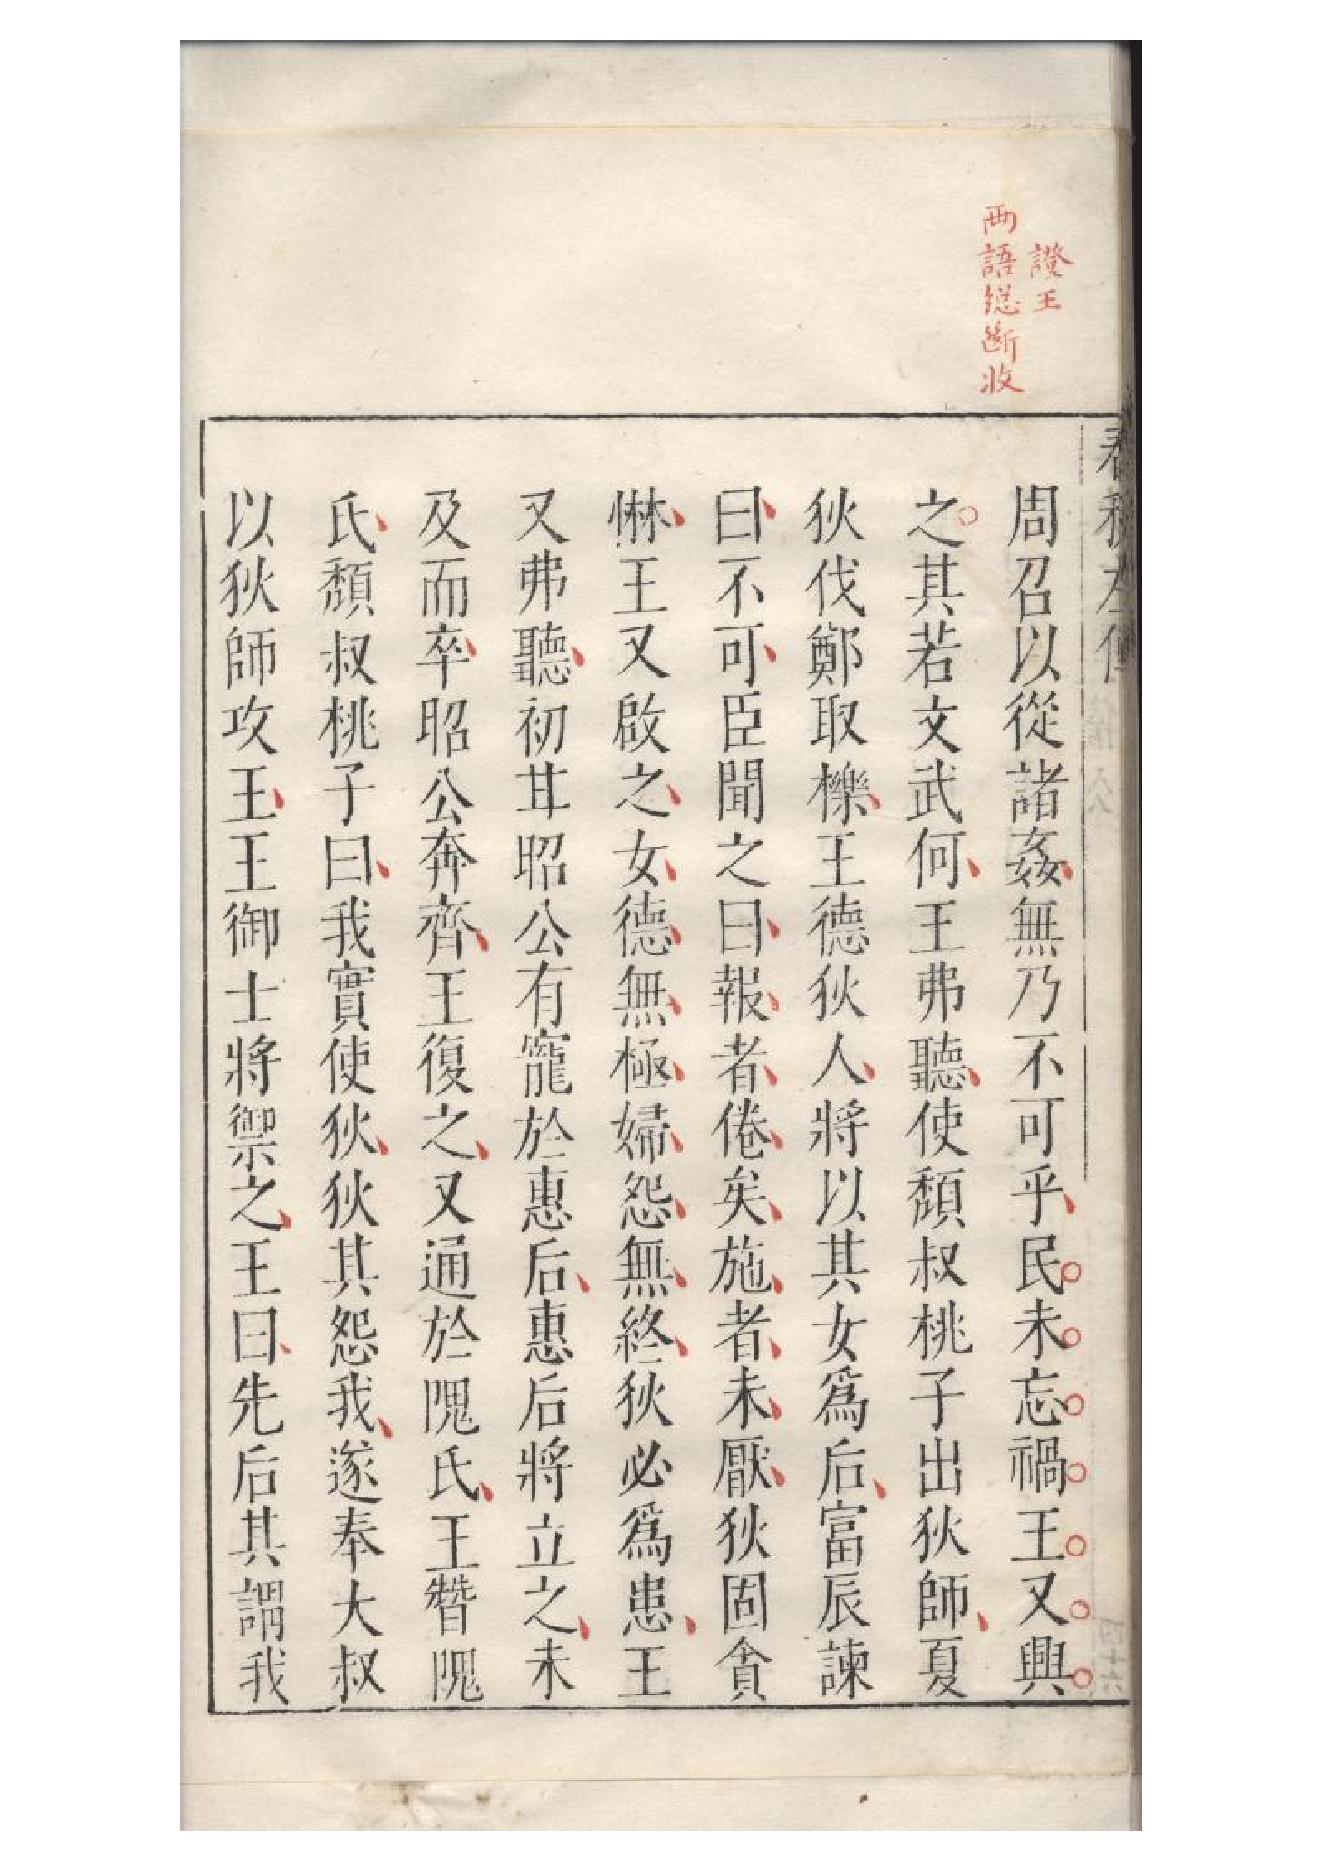 證王
兩語總斷收
春秋左傳
僖公
四十六
周召以從諸姦無乃不可乎民未忘禍王又興
之其若文武何王弗聽使頹叔桃子出狄師夏
狄伐鄭取櫟王德狄人將以其女爲后富辰諫
曰不可臣聞之曰報者倦矣施者未厭狄固貪
惏王又啟之女德無極婦怨無終狄必爲患王
又弗聽初甘昭公有寵於惠后惠后將立之未
及而卒昭公奔齊王復之又通於隗氏王朁隗
氏頹叔桃子曰我實使狄狄其怨我遂奉大叔
以狄師攻王王御士將禦之王曰先后其謂我